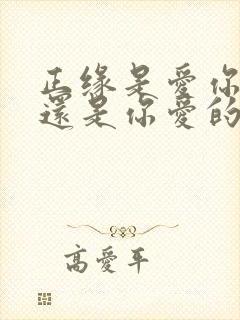 正緣是愛你
還是你愛的
高愛平